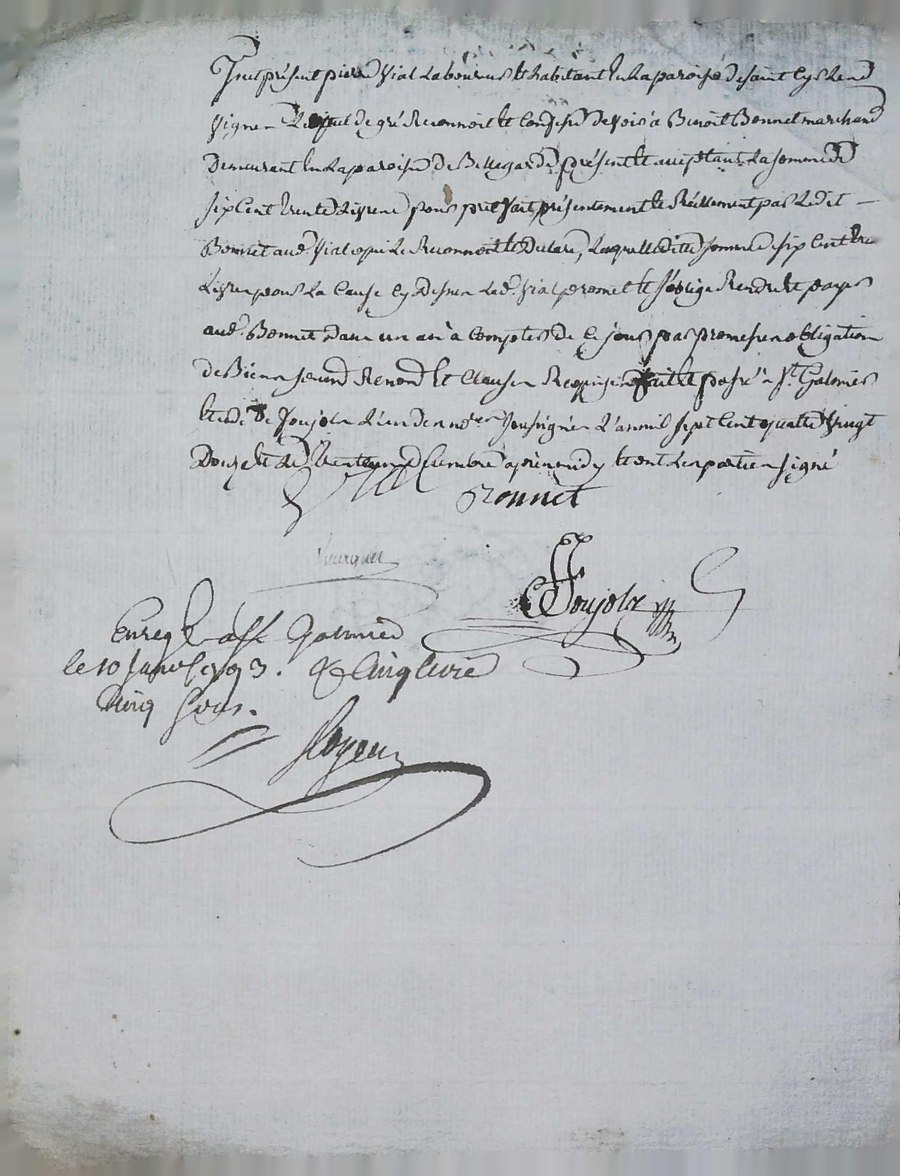 Fut présent pierre Vial Laboureur et habitant en la paroisse de saint Cyr Les
Vignes Lequel de gré Reconnoit et Confesse devoir à Benoit Bonnet marchand
Demeurant en la paroisse de Bellegarde présent et acceptant La somme de
six Cent trente Livres pour prêt fait présentement et Réellement par Ledit
Bonnet aud. Vial qui Le Reconnoit et Déclare, Laquelle ditte somme de six Cent
Livres pour La Cause Cy dessus Led. Vial promet et s'oblige Rendre et payer
aud. Bonnet dans un an à Compter de Ce jour par promesse obligation
de Biens Renon et Clauses fait et passé à St. Galmier
Etude de Joujola L'un des nores soussignés L'an mil sept Cent quatre vingt
Douze et Le décembre après midy et ont Les parties signé
Vial Bonnet
Joujola
Enreg à St Galmier
le 10 janv. 1793. Cinq livres
Cinq sous.